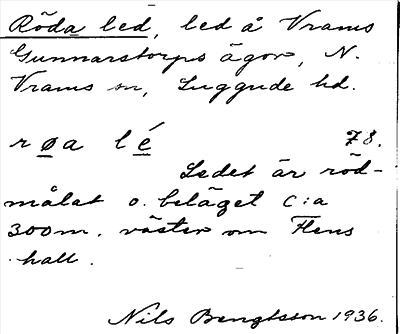 Röda led, led å Vrams
Gunnarstorps ägor, N.
Vrams sn, Luggude hd.
røa lé 78.
Ledet är röd-
målat o. beläget c:a
300m. väster om Flens
hall.
Nils Bengtsson 1936.